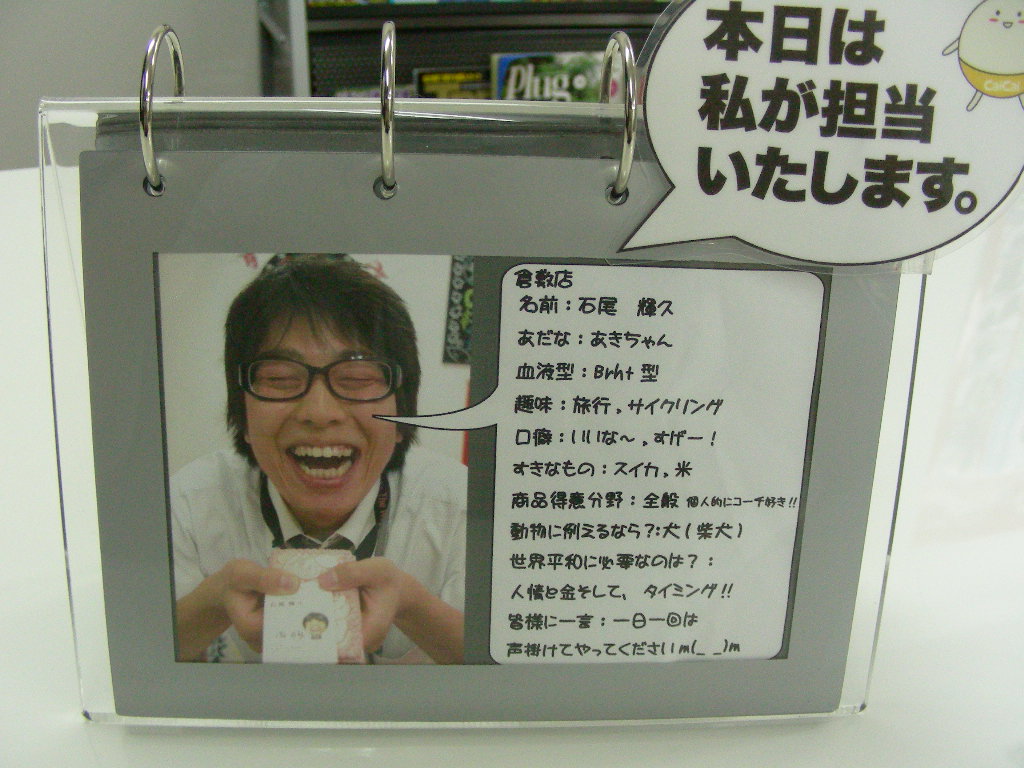 Plug
本日は
私が担当
いたします。
CaiCai
倉敷店
名前：石尾 輝久
あだな：あきちゃん
血液型：Brht型
趣味：旅行，サイクリング
口癖：いいな～，すげー！
すきなもの：スイカ，米
商品得意分野：全般 個人的にコーチ好き!!
動物に例えるなら？:犬(柴犬)
世界平和に必要なのは？：
人情と金そして、タイミング!!
皆様に一言：一日一回は
声掛けてやってくださいm(_ _)m